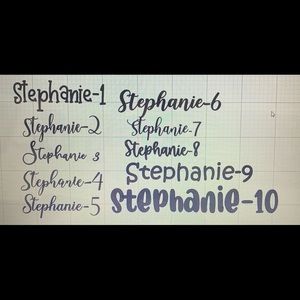 Stephanie-1
Stephanie-2
Stephanie 3
Stephanie-4
Stephanie-5
Stephanie-6
Stephanie-7
Stephanie-8
Stephanie-9
Stephanie-10